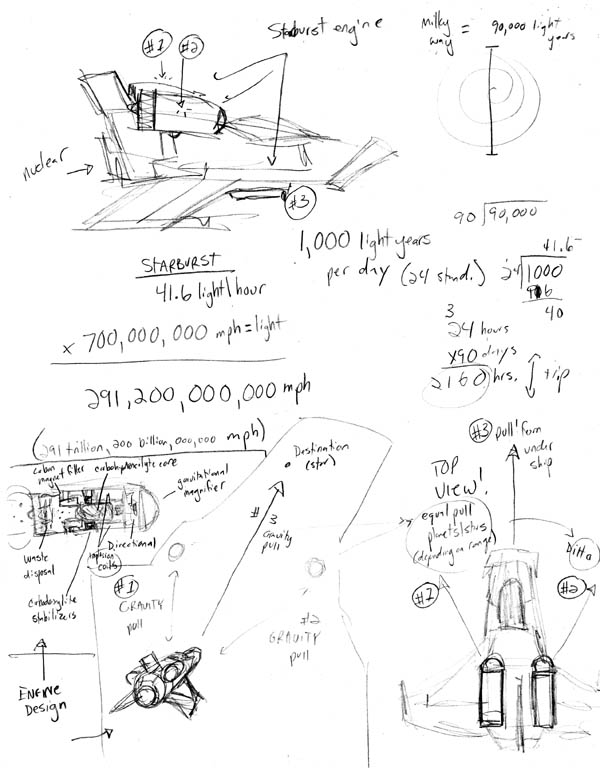 #1
#2
Starburst engine
nuclear
#3
Milky
way
= 90,000 light
years
90 ⟌90,000
1,000 light years
per day (24 stand.)
41.6
24 ⟌1000
40
3
24 hours
x90 days
2160 hrs.
trip
STARBURST
41.6 light/hour
x 700,000,000 mph = light
291,200,000,000 mph
(291 trillion, 200 billion, 000,000 mph)
magnet filler
core
gravitational
magnifier
Waste
disposal
Directional
coils
stabilizers
ENGINE
Design
Destination
(star)
#3
Gravity
pull
#1
GRAVITY
pull
#2
GRAVITY
pull
#3 pull from
under
ship
TOP
VIEW!
equal pull
planets/stars
(depending on range)
Ditto
#1
#2